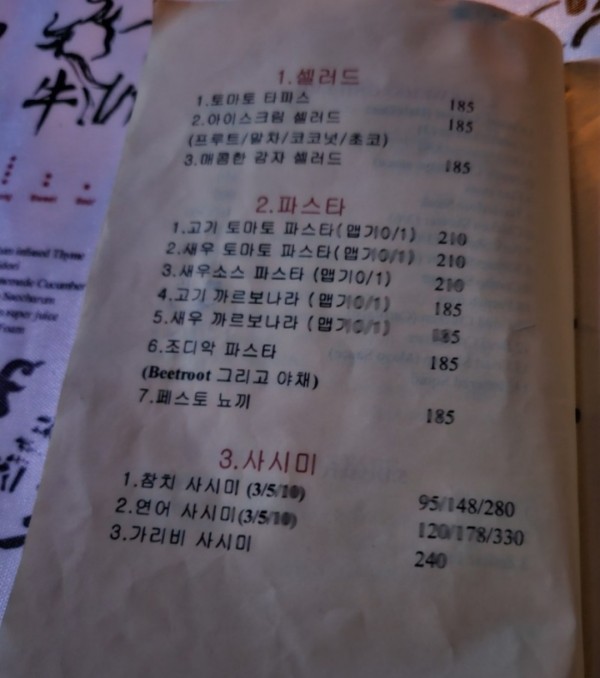 牛
1.셀러드
1.토마토 타파스 185
2.아이스크림 셀러드 185
(프루트/말차/코코넛/초코)
3.매콤한 감자 셀러드 185
2.파스타
1.고기 토마토 파스타(맵기0/1) 210
2.새우 토마토 파스타(맵기0/1) 210
3.새우소스 파스타 (맵기0/1) 210
4.고기 까르보나라 (맵기0/1) 185
5.새우 까르보나라 (맵기0/1) 185
6.조디악 파스타 185
(Beetroot 그리고 야채)
7.페스토 뇨끼 185
3.사시미
1.참치 사시미 (3/5/10) 95/148/280
2.연어 사시미(3/5/10) 120/178/330
3.가리비 사시미 240
infused Thyme
Cucumber
Saccharum
juice